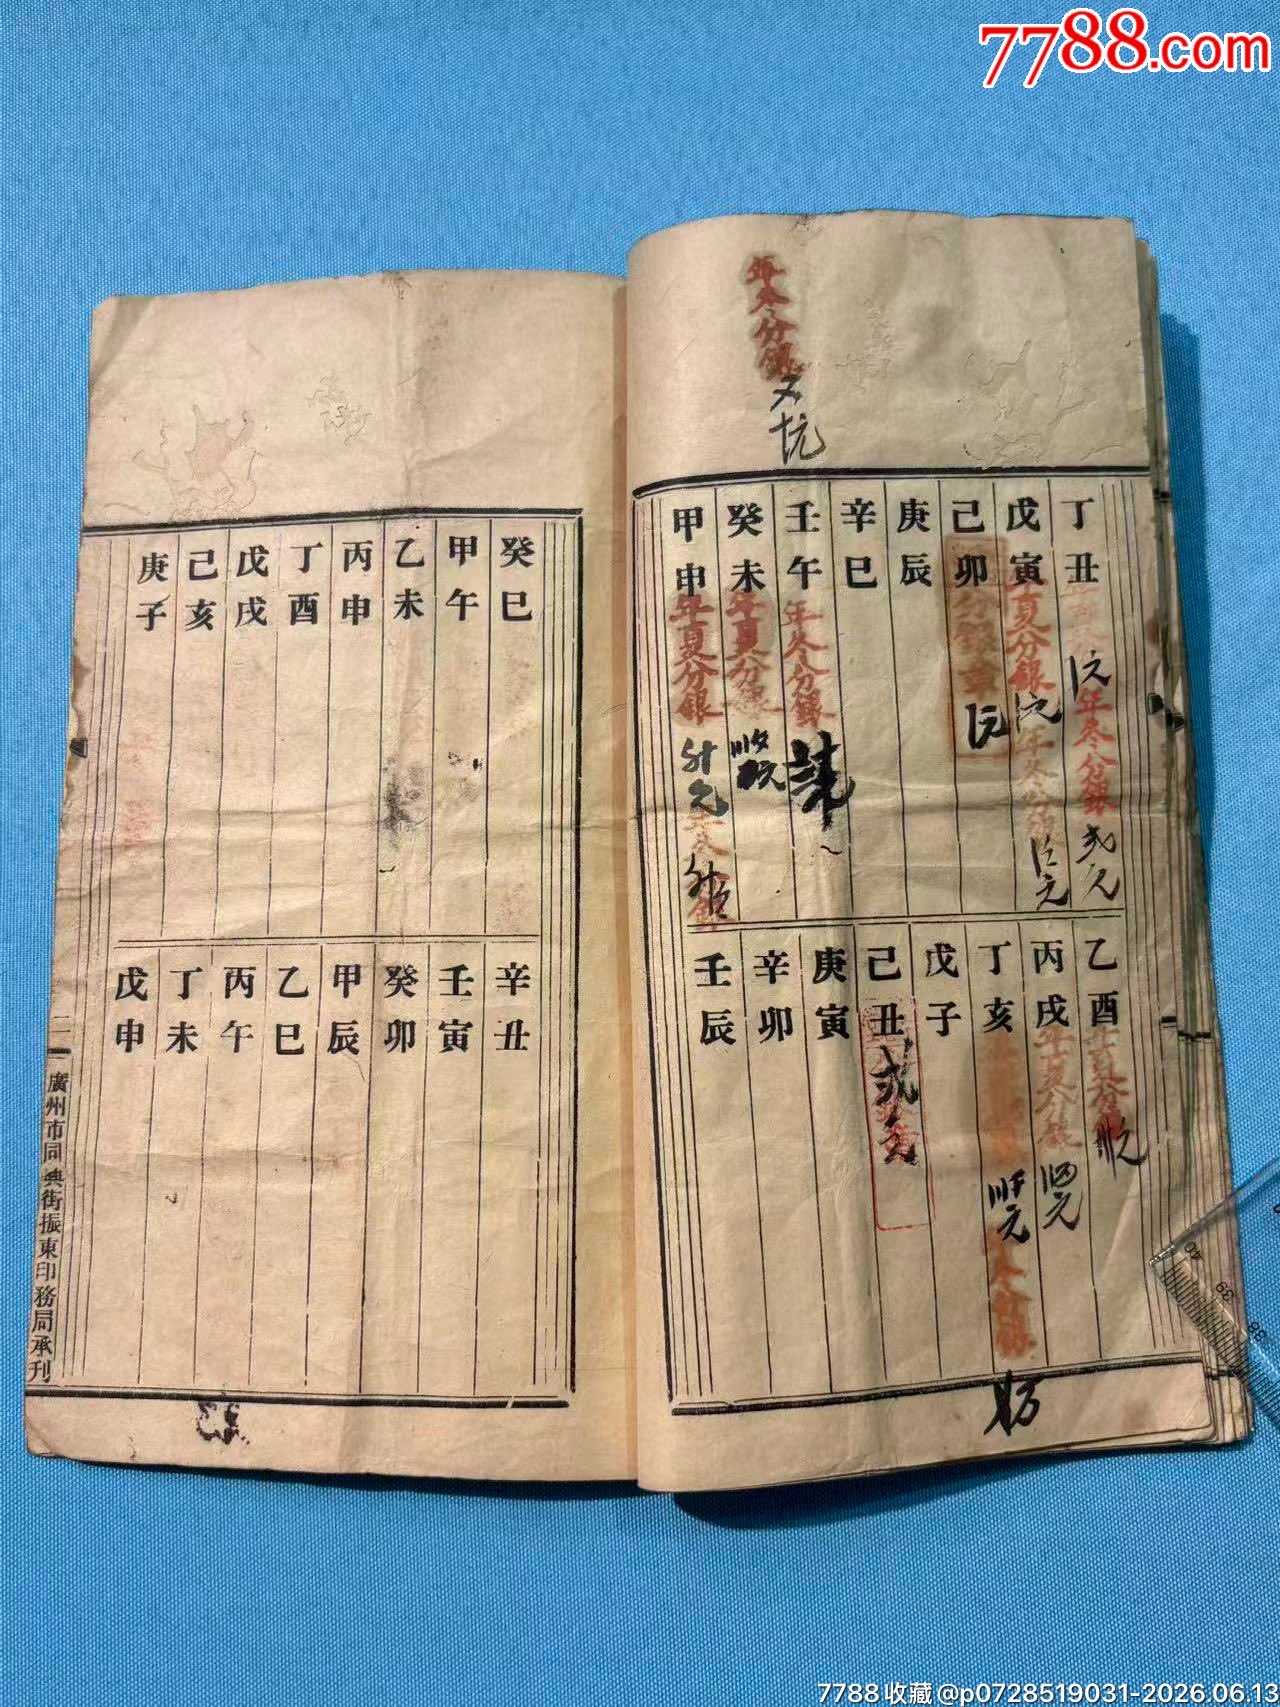 7788.com
年冬分銀
丁丑
年冬分銀
弍元
戊寅
年夏分銀
年冬分銀
元
己卯
分銀章
庚辰
辛巳
壬午
年冬分銀
癸未
年夏分銀
元
甲申
年夏分銀
元
乙酉
年夏分銀
元
丙戌
年夏分銀
元
丁亥
元
年冬分銀
戊子
己丑
弍元
庚寅
辛卯
壬辰
癸巳
甲午
乙未
丙申
丁酉
戊戌
己亥
庚子
辛丑
壬寅
癸卯
甲辰
乙巳
丙午
丁未
戊申
二
廣州市同興街振東印務局承刊
40
39
38
7788收藏@p0728519031-2026.06.13